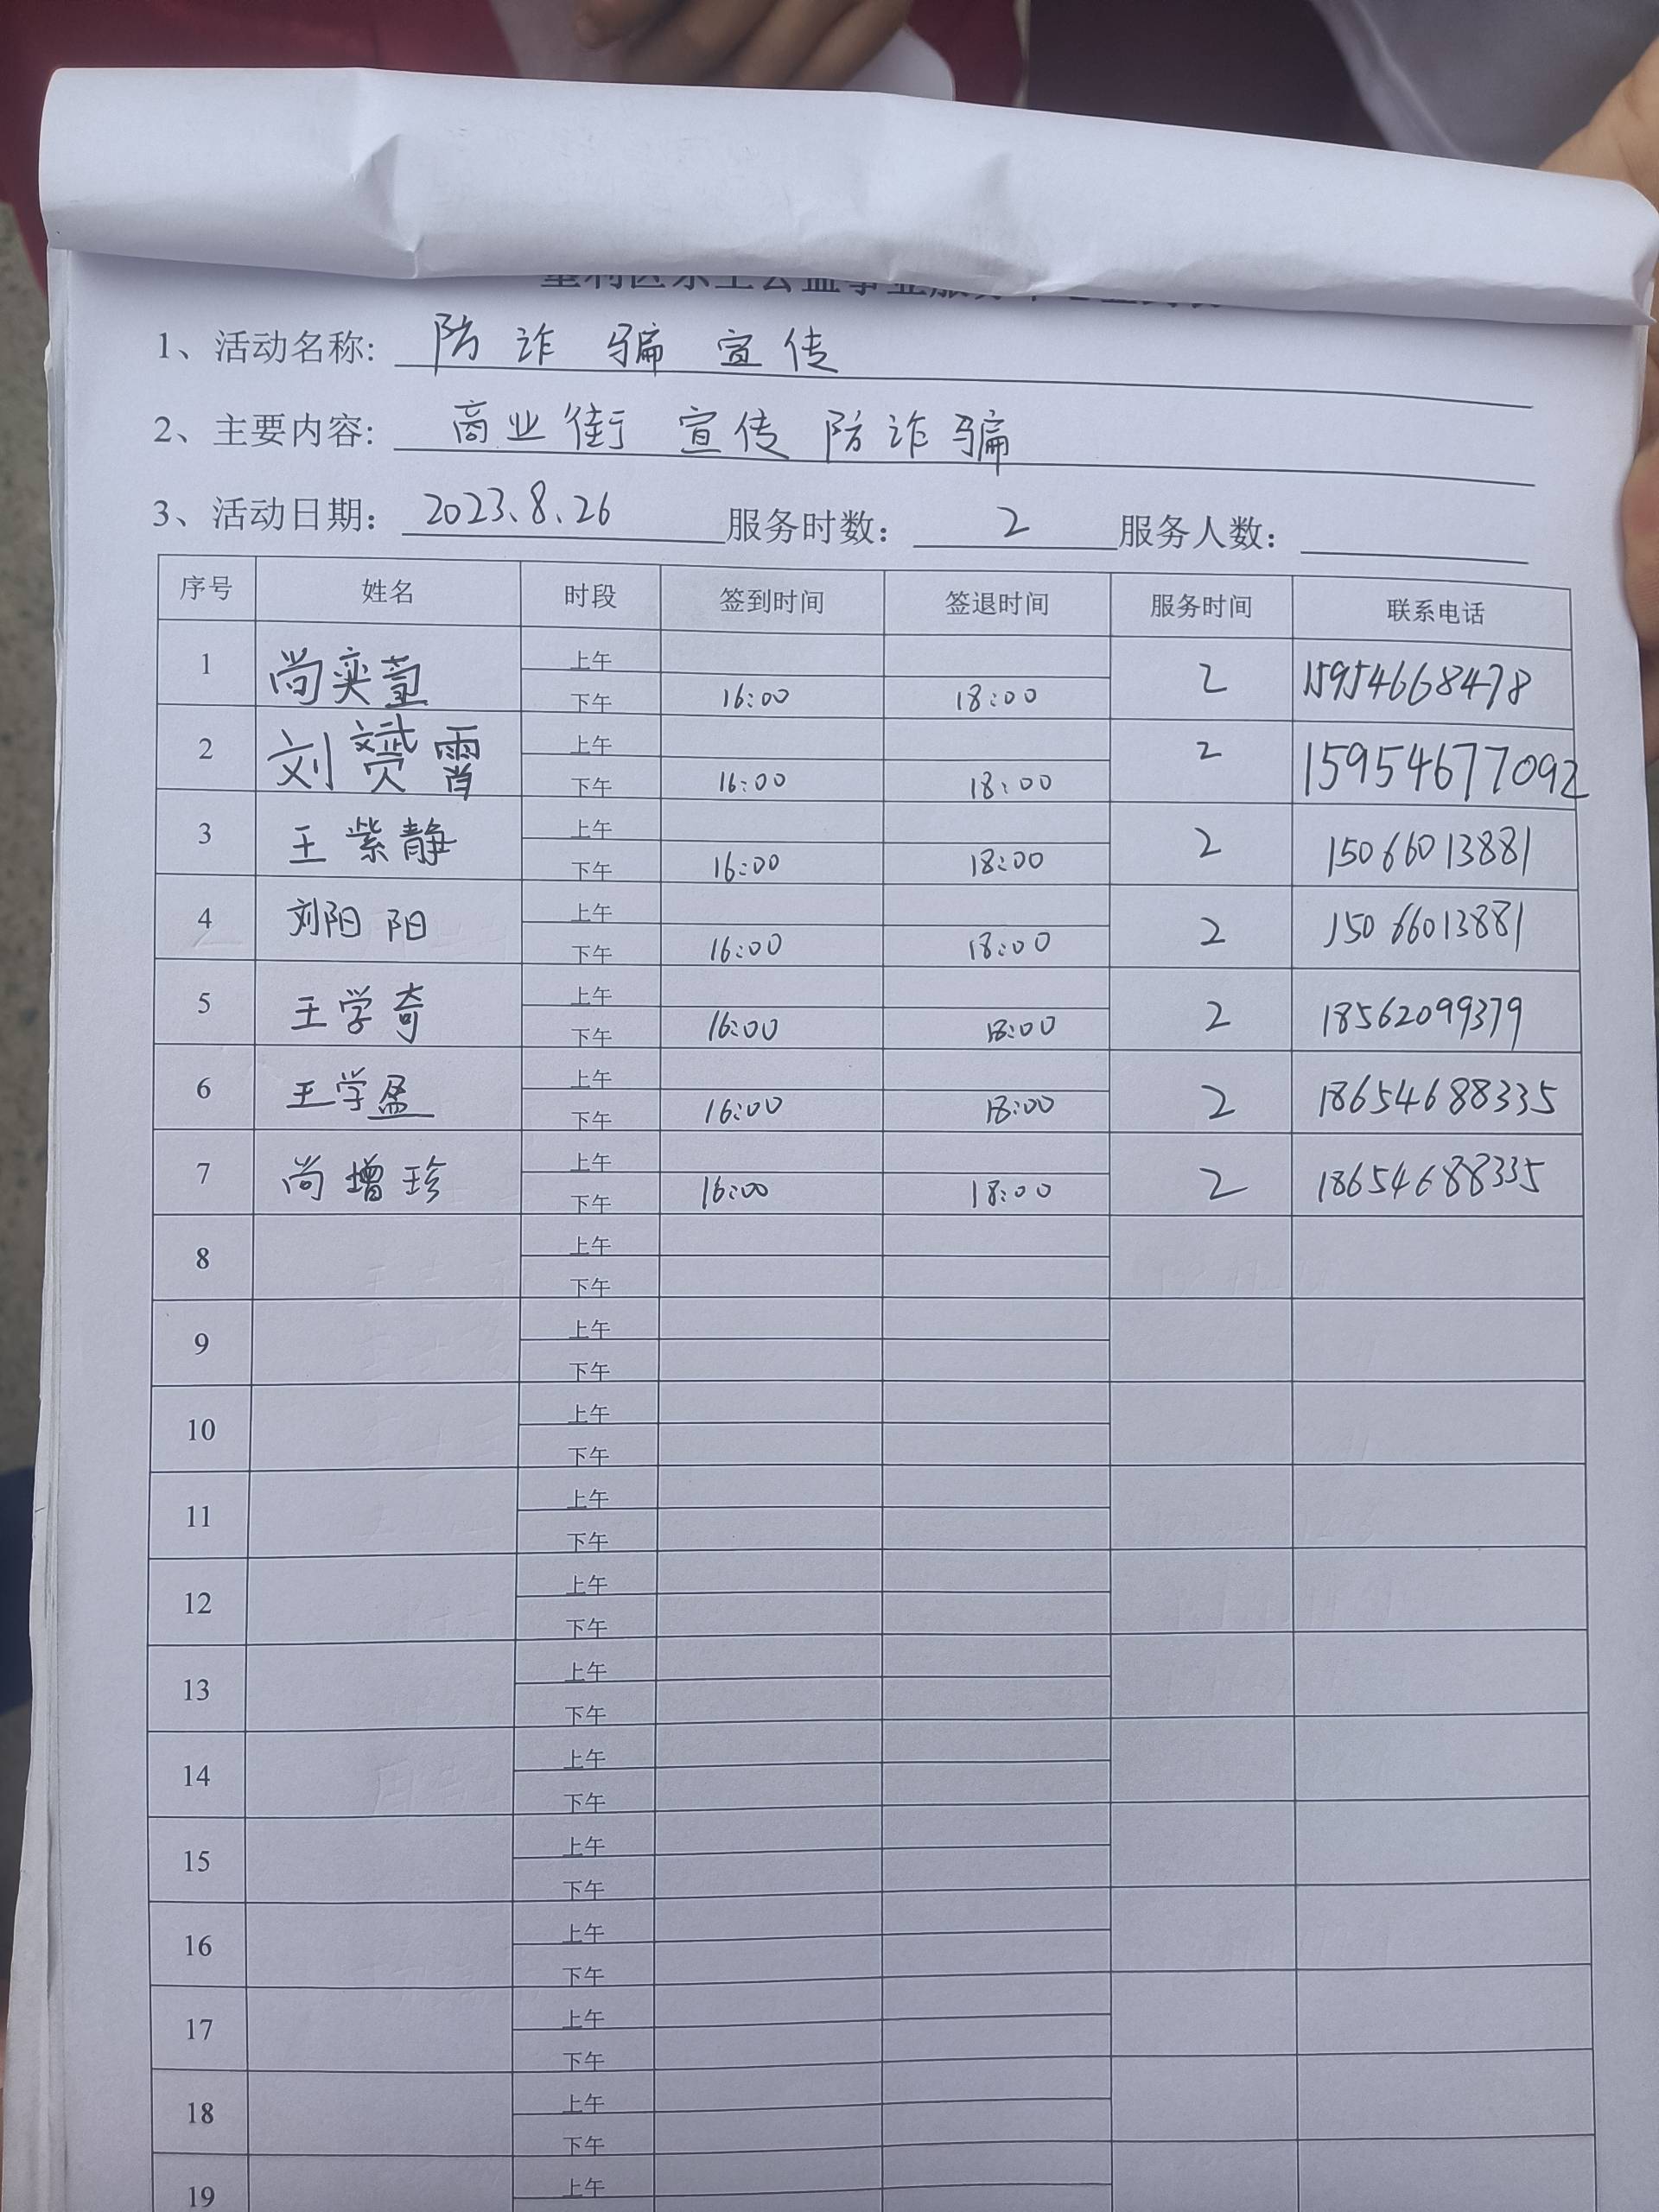 1、活动名称: 防诈骗宣传
2、主要内容: 商业街 宣传防诈骗
3、活动日期: 2023.8.26 服务时数: 2 服务人数:
序号 姓名 时段 签到时间 签退时间 服务时间 联系电话
1 尚奕萱 上午 2 15954668478
下午 16:00 18:00
2 刘赟霄 上午 2 15954677092
下午 16:00 18:00
3 王紫静 上午 2 15066013881
下午 16:00 18:00
4 刘阳阳 上午 2 15066013881
下午 16:00 18:00
5 王学奇 上午 2 18562099379
下午 16:00 18:00
6 王学盈 上午 2 18654688335
下午 16:00 18:00
7 尚增珍 上午 2 18654688335
下午 16:00 18:00
8 上午
下午
9 上午
下午
10 上午
下午
11 上午
下午
12 上午
下午
13 上午
下午
14 上午
下午
15 上午
下午
16 上午
下午
17 上午
下午
18 上午
下午
19 上午